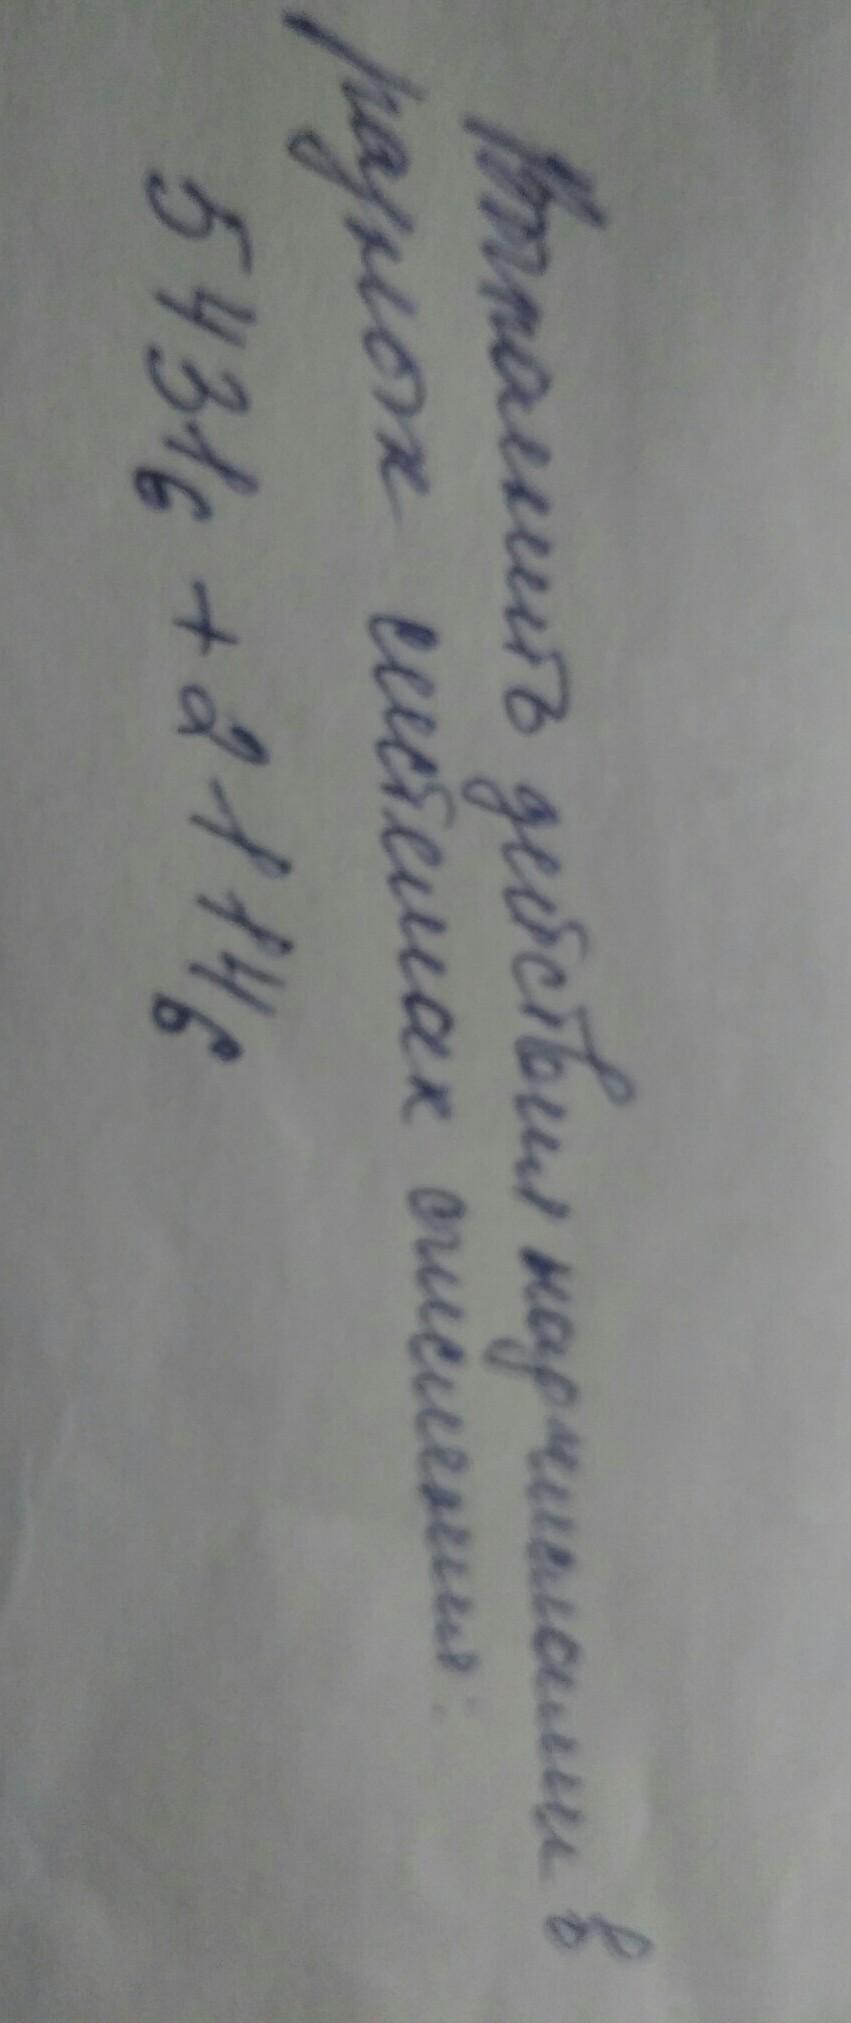 Выполнить действия над числами в
разных системах счисления:
5431₆ + 2114₆